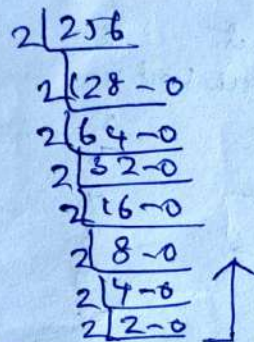 2 | 256
2 | 128 - 0
2 | 64 - 0
2 | 32 - 0
2 | 16 - 0
2 | 8 - 0
2 | 4 - 0
2 | 2 - 0